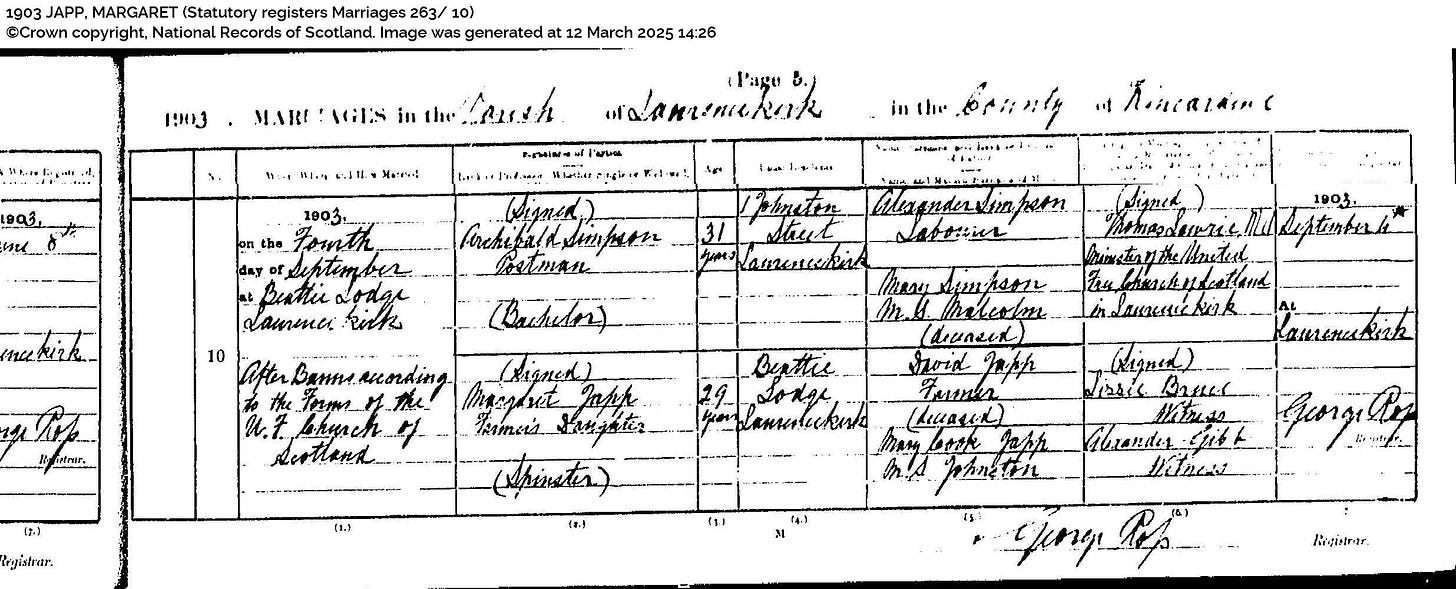 1903 JAPP, MARGARET (Statutory registers Marriages 263/ 10)
©Crown copyright, National Records of Scotland. Image was generated at 12 March 2025 14:26
(Page 5.)
1903 . MARRIAGES in the Parish of Laurencekirk in the County of Kincardine
Signatures of Parties.
No. When, Where, and How Married. Rank or Profession, Whether Single or Widowed. Age Usual Residence
1903.
on the Fourth
day of September
at Beattie Lodge
Laurencekirk
After Banns according
to the Forms of the
U. F. Church of
Scotland
10
(Signed)
Archibald Simpson
Postman
(Bachelor)
(Signed)
Margaret Japp
Farmer's Daughter
(Spinster)
31
years
29
years
1 Johnston
Street
Laurencekirk
Beattie
Lodge
Laurencekirk
Alexander Simpson
Labourer
Mary Simpson
M.S. Malcolm
(deceased)
David Japp
Farmer
(deceased)
Mary Cook Japp
M.S. Johnston
(Signed)
Thomas Lowrie
Minister of the United
Free Church of Scotland
in Laurencekirk
(Signed)
Lizzie Bruce
Witness
Alexander Gibb
Witness
1903.
September
At
Laurencekirk
George Ross
Registrar.
(1.) (2.) (3.) (4.) (5.) (6.)
M
George Ross
Registrar.
1903.
8th
encekirk
Registrar.
(7.)
Registrar.